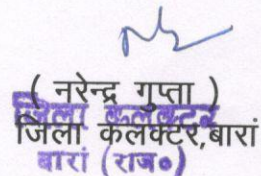 ( नरेन्द्र गुप्ता )
जिला कलक्टर
जिला कलक्टर,बारां
बारां (राज०)